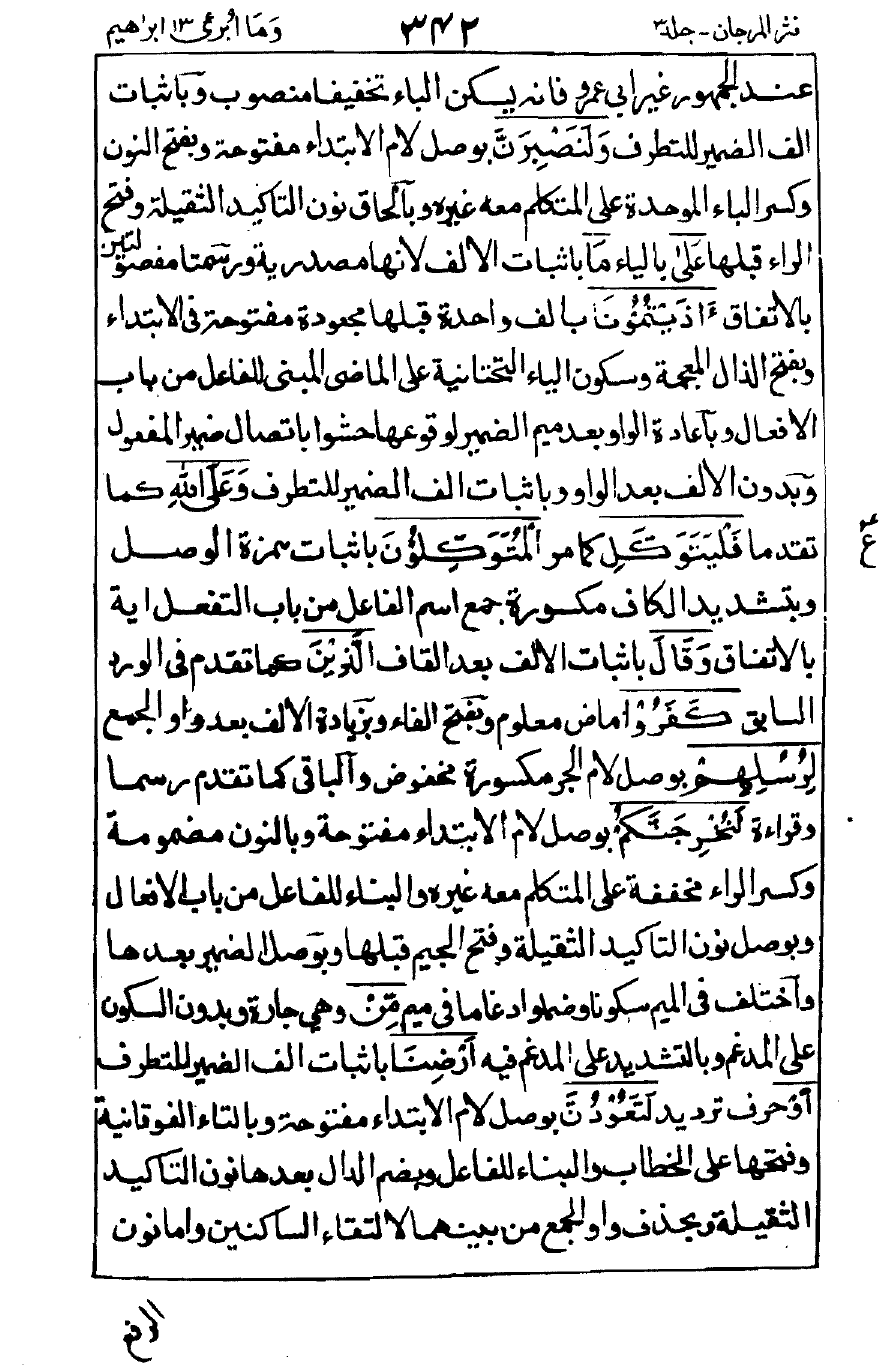 نثر المرجان - جلد ٣ ٣٤٢ وَمَا أُبَرِّئُ ١٣ ابراهيم
عند الجمهور غير ابي عمرو فانه يسكن الباء تخفيفا منصوب وباثبات
الف الضمير للتطرف وَلَنَصْبِرَنَّ بوصل لام الابتداء مفتوحة وبفتح النون
وكسر الباء الموحدة على المتكلم معه غيره وبالحاق نون التاكيد الثقيلة وفتح
الراء قبلها عَلىٰ بالياء مَا باثبات الالف لانها مصدرية ورسمتا مفصولتين
بالاتفاق ءَاذَيْتُمُوْنَا بالف واحدة قبلها مجعودة مفتوحة فى الابتداء
وبفتح الذال المعجمة وسكون الياء التحتانية على الماضى المبنى للفاعل من باب
الافعال وباعادة الواو بعد ميم الضمير لوقوعها حشوا باتصال ضمير المفعول
وبدون الالف بعد الواو وباثبات الف الضمير للتطرف وَعَلَى اللهِ كما
تقدما فَلْيَتَوَكَّلِ كما مر الْمُتَوَكِّلُوْنَ باثبات همزة الوصل
وبتشديد الكاف مكسورة جمع اسم الفاعل من باب التفعل اية
بالاتفاق وَقَالَ باثبات الالف بعد القاف الَّذِيْنَ كما تقدم فى الورد
السابق كَفَرُوْا ماض معلوم وبفتح الفاء وبزيادة الالف بعد واو الجمع
لِرُسُلِهِمْ بوصل لام الجر مكسورة مخفوض والباقى كما تقدم رسما
وقراءة لَنُخْرِجَنَّكُمْ بوصل لام الابتداء مفتوحة وبالنون مضمومة
وكسر الراء مخففة على المتكلم معه غيره والبناء للفاعل من باب الافعال
وبوصل نون التاكيد الثقيلة وفتح الجيم قبلها وبوصل الضمير بعدها
واختلف فى الميم سكونا وضما وادغاما فى ميم مِّنْ وهي جارة وبدون السكون
على المدغم وبالتشديد على المدغم فيه أَرْضِنَا باثبات الف الضمير للتطرف
أَوْ حرف ترديد لَتَعُوْدُنَّ بوصل لام الابتداء مفتوحة وبالتاء الفوقانية
وفتحها على الخطاب والبناء للفاعل وبضم الدال بعدها نون التاكيد
الثقيلة وبحذف واو الجمع من بينهما لالتقاء الساكنين واما نون
ع
الرفع